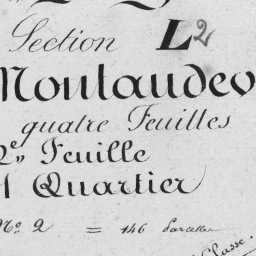 Section L2
Montaudev
quatre Feuilles
2e,, Feuille
1 Quartier
No 2 = 146 Parcelles
Classe.